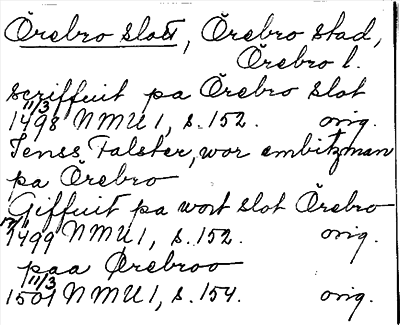 Örebro slott, Örebro stad,
Örebro l.
scriffuit pa Örebro slot
11/3 1498 NMU 1, s. 152. orig.
Jenss Falster, wor embitzman
pa Örebro
Giffuit pa wort slot Örebro
1499 NMU 1, s. 152. orig.
paa Ørebroo
11/3 1501 NMU 1, s. 154. orig.